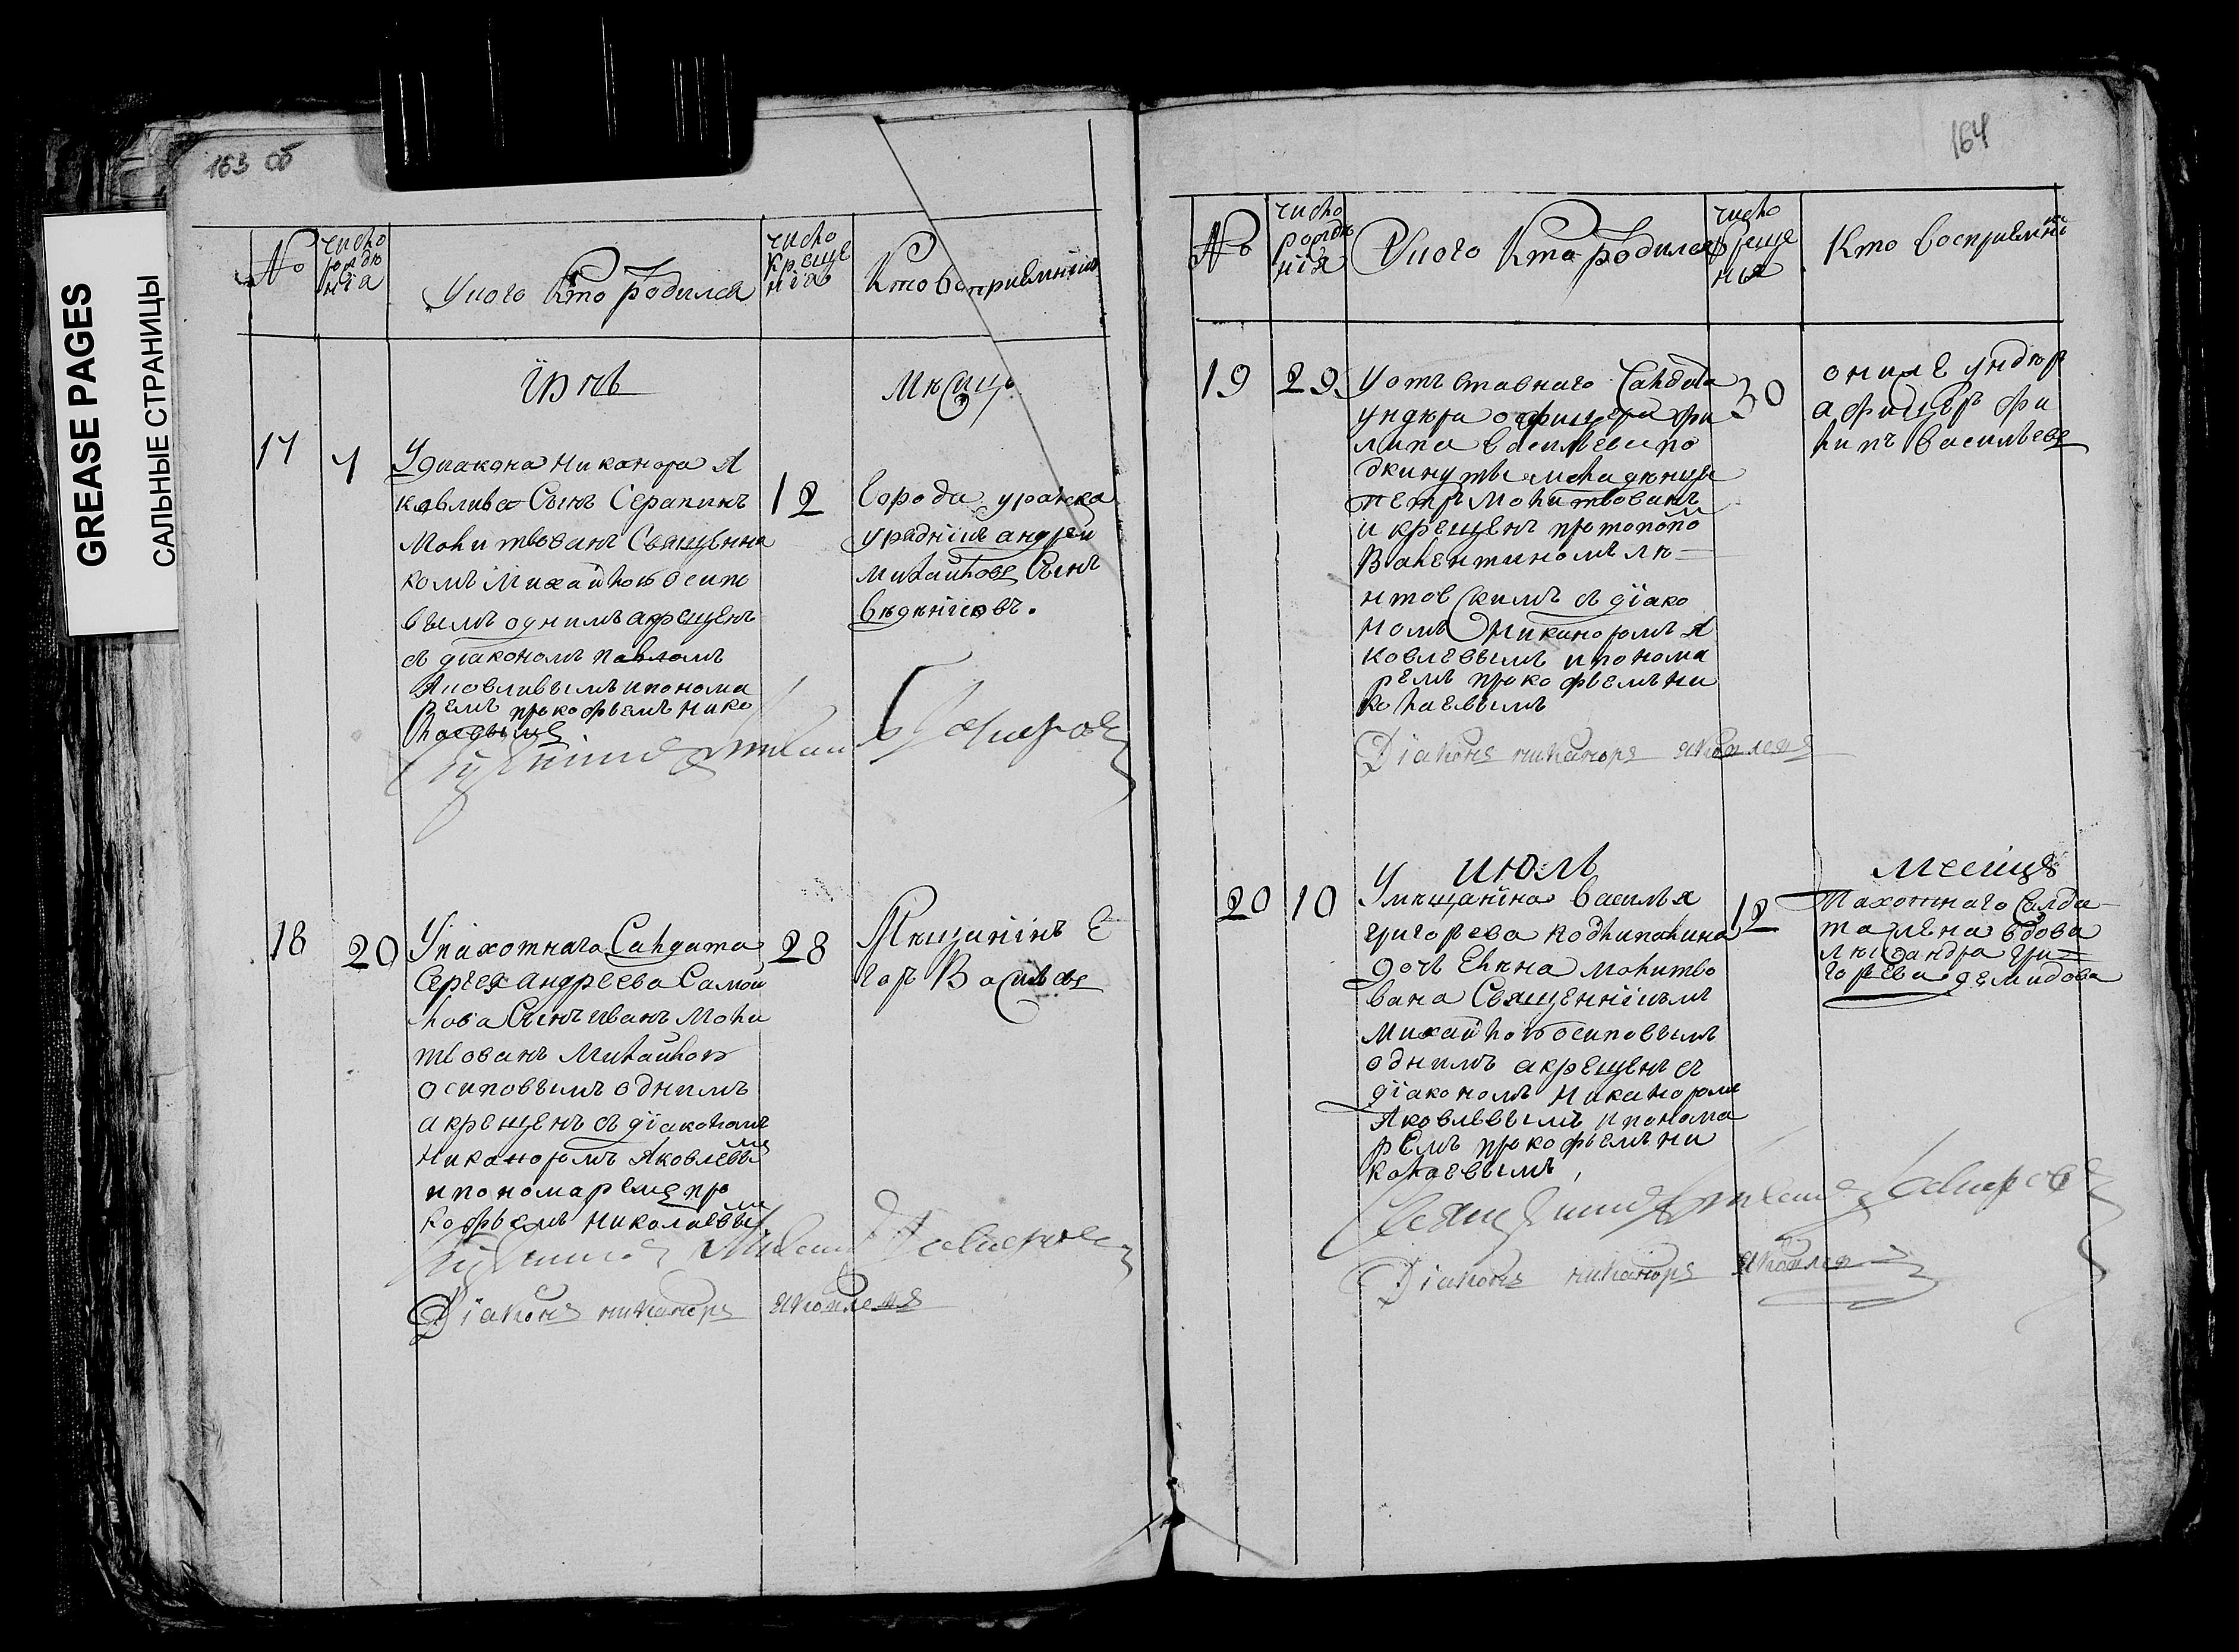 GREASE PAGES
САЛЬНЫЕ СТРАНИЦЫ
163 об
№
число рождѣ нія
Уного Кто родился
число креще нія
Кто восприемникъ
Їюнь
Мѣсяцъ
17
1
Удиакона Никанора Я
ковлива Сынъ Серапинъ
молитвованъ Священни
комъ Михайлою осипо
вымъ однимъ акрещенъ
съ діакономъ павломъ
Яковливымъ ипонома
ремъ прокофьемъ нико
лаевымъ
12
Города уралска
урядникъ андрей
михайловъ Сынъ
18
20
Упахотнаго Салдата
Сергея андреева Самой
лова Сынъ иванъ моли
твованъ михайлою
осиповымъ однимъ
акрещенъ съ діакономъ
Никаноромъ Яковлевы
мъ
ипономаремъ про
кофьемъ николаевы
мъ
28
Мѣщанинъ Е
горъ Василевъ
Діаконъ никаноръ яковлевъ
164
№
число рождѣ нія
Уного Кто родился
число креще нія
Кто восприемникъ
19
29
Уотъставнаго Салдата
ундѣра офицера фи
липа василева по
дкинутый младенецъ
петръ молитвованъ
и крещенъ протопопо
мъ
валентиномъ лѣ-
нтовскимъ съ діако
номъ Никаноромъ Я
ковлевымъ ипонома
ремъ прокофьемъ ни
колаевымъ
30
онъже ундѣр
афицеръ фи
липъ васильевъ
Діаконъ никаноръ яковлевъ
июль
месяцъ
20
10
Умѣщанина василья
григорева
дочь Елена молитво
вана Священникомъ
михайлою осиповымъ
однимъ акрещенъ съ
діакономъ никаноромъ
Яковлевымъ ипонома
ремъ прокофьемъ ни
колаевымъ,
12
Пахотнаго Салда-
та жена вдова
гри=
горева демидова
Діаконъ никаноръ яковлевъ